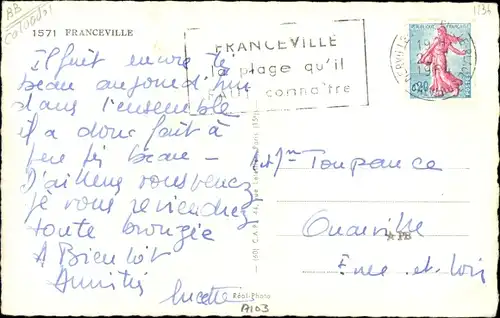 BB
Calvados
1234
1571 FRANCEVILLE
FRANCEVILLE
la plage qu'il
FAUT connaître
19
196
RÉPUBLIQUE FRANÇAISE
Il fait encore
beau aujourd'hui
dans l'ensemble
il a donc fait à
peu près beau —
D'ailleurs vous verrez
je vous reviendrez
toute bronzée
A Bientôt
Amitiés
Lucette
Toupance
Ouarville
Eure-et-Loir
APB
Réal-Photo
A103